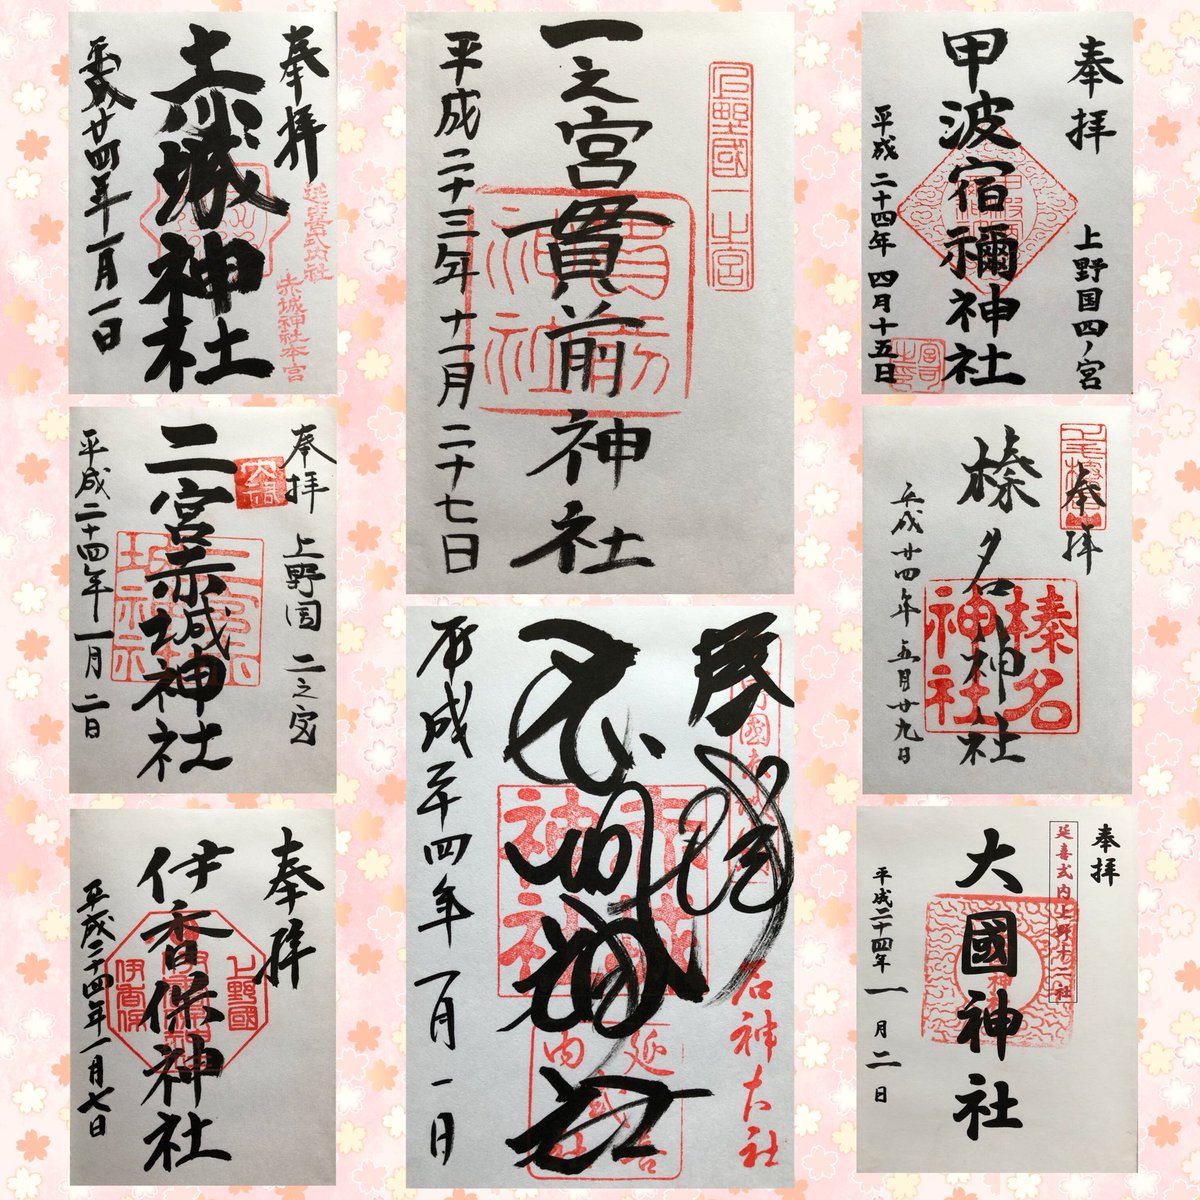 奉拝
延喜式内社
赤城神社本宮
赤城神社
平成廿四年一月一日
上野國一之宮
一之宮貫前神社
貫前
神社
平成二十三年十一月二十七日
奉拝
上野国四ノ宮
甲波宿禰神社
平成二十四年四月十五日
奉拝
上野国 二之宮
二宮赤城神社
平成二十四年一月二日
奉拝
榛名神社
榛名
神社
平成廿四年五月廿九日
奉拝
上野國
伊香保神社
伊香保
平成二十四年一月七日
神社
延喜
式内社
平成二十四年一月一日
奉拝
延喜式内上野十二社
大國神社
平成二十四年一月二日